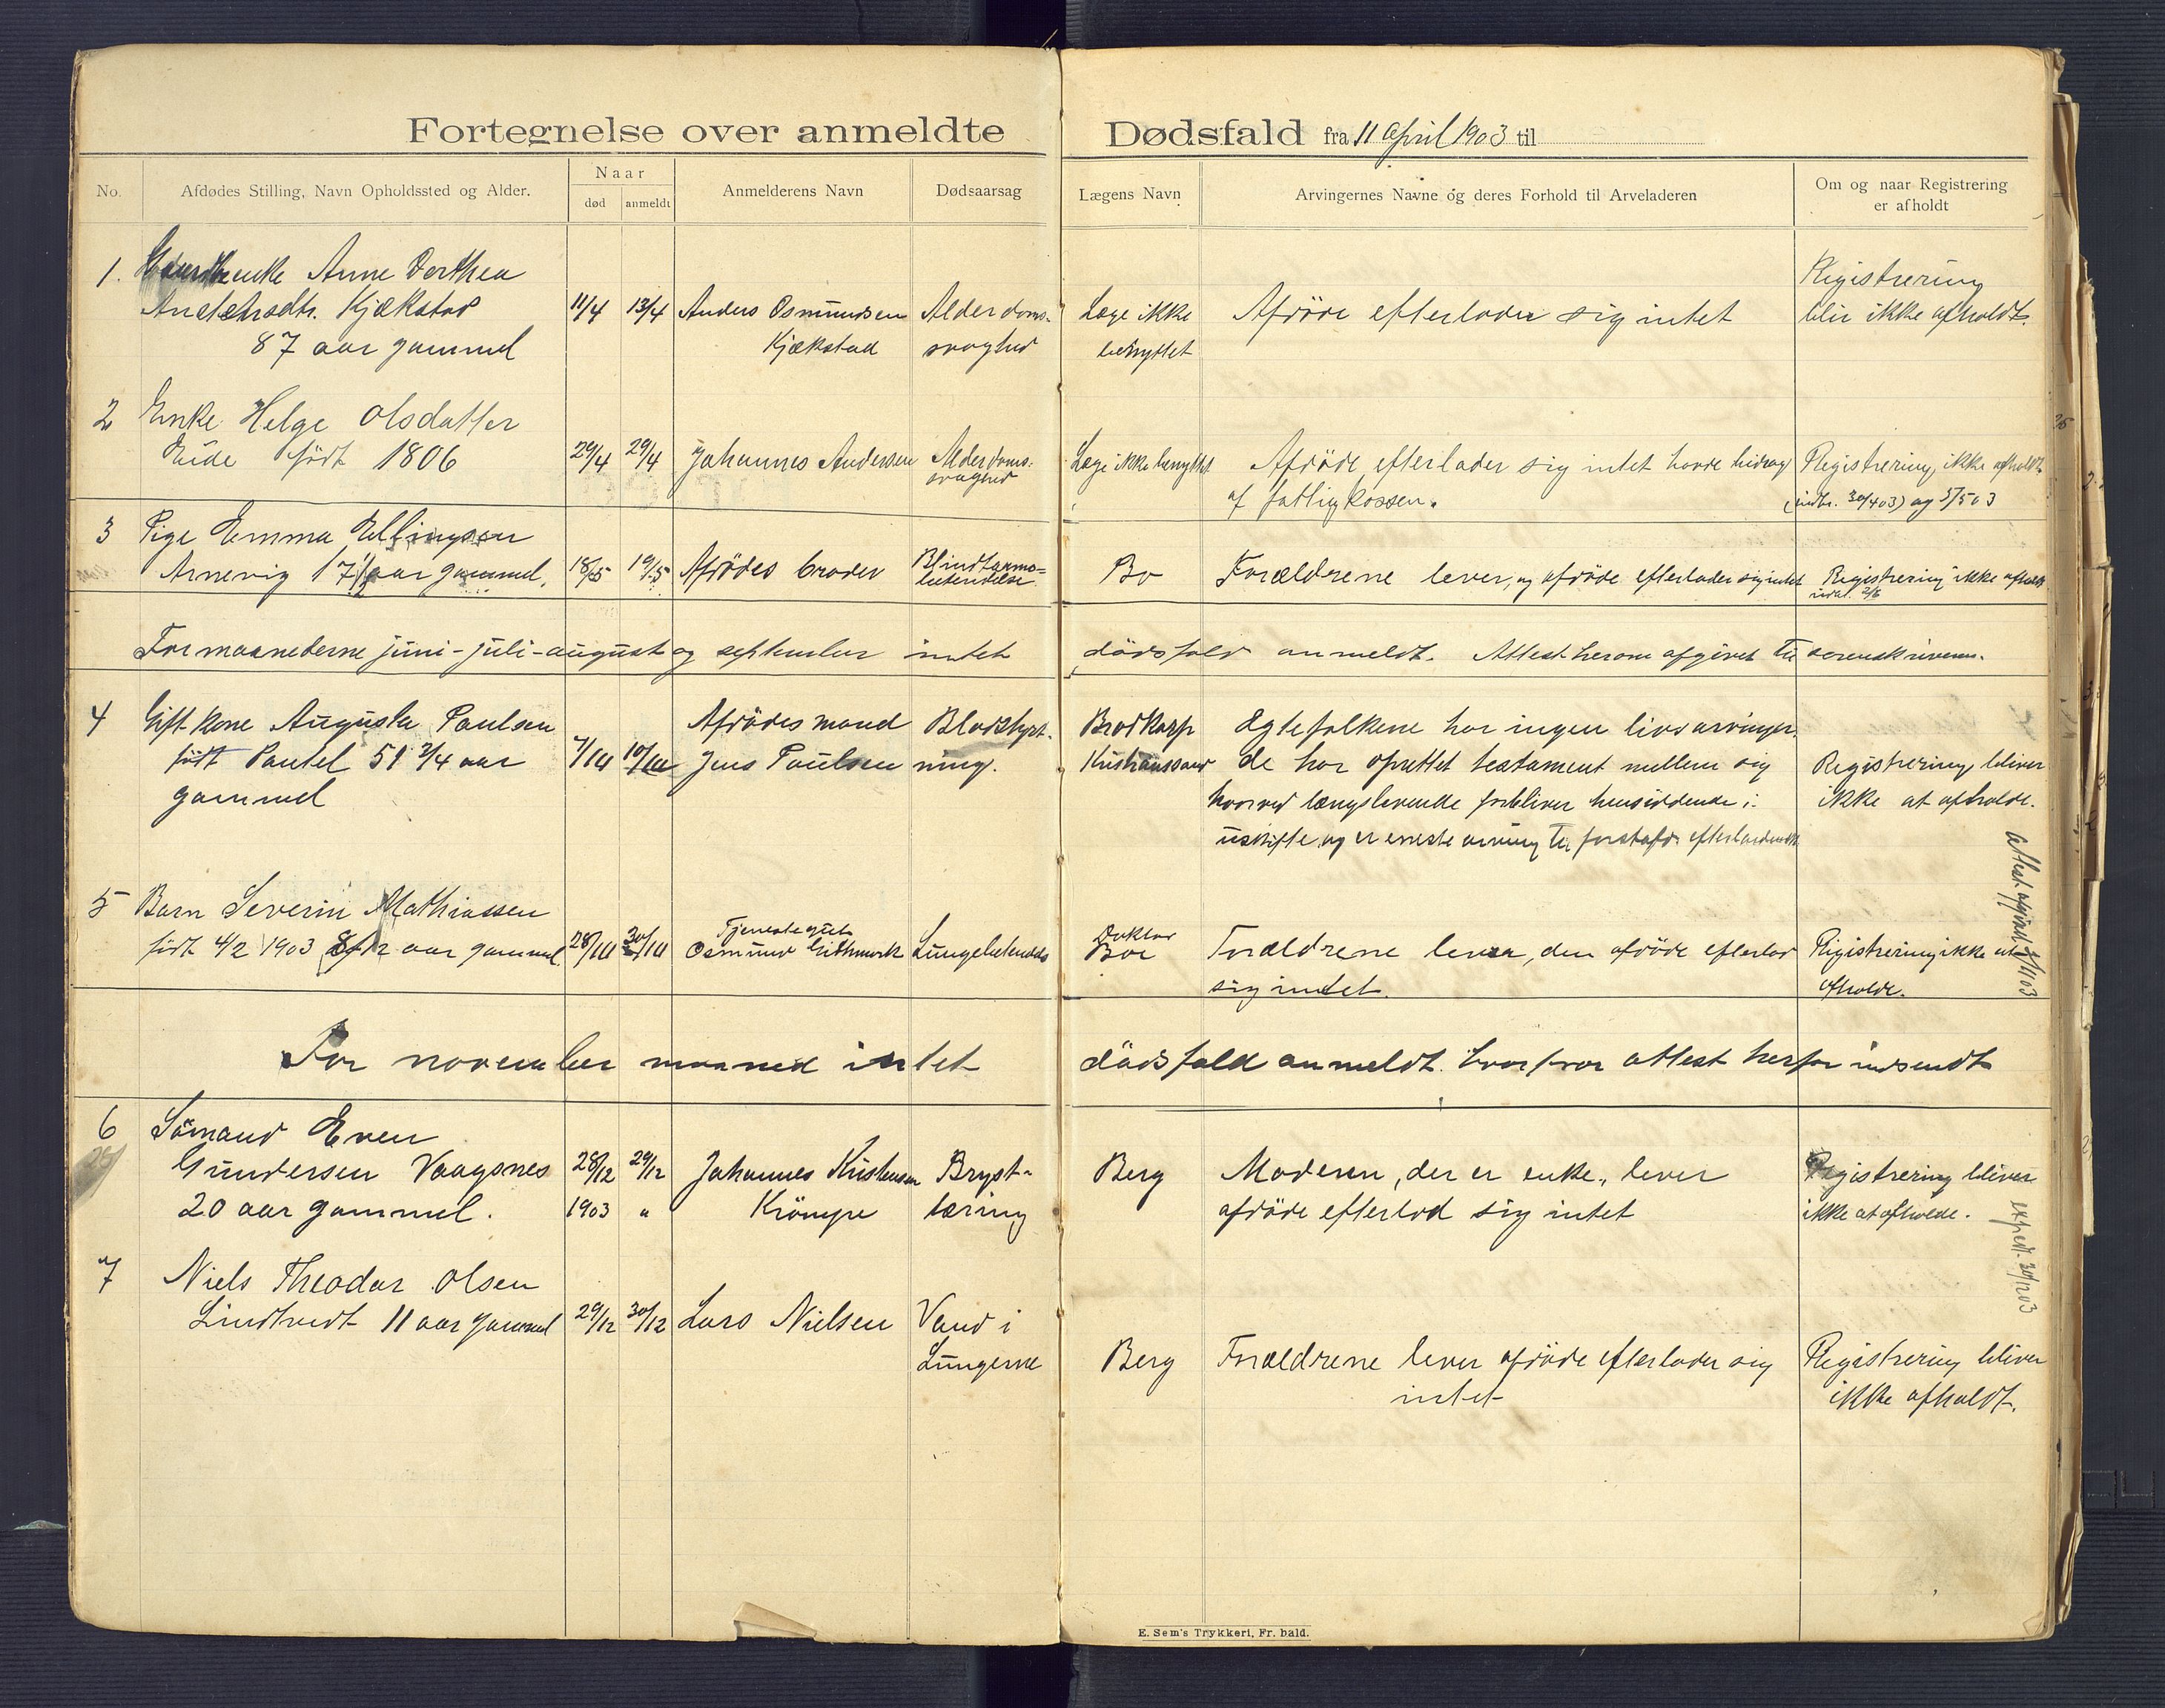 Fortegnelse over anmeldte Dødsfald fra 11 april 1903 til
No. Afdødes Stilling, Navn Opholdssted og Alder. Naar død anmeldt Anmelderens Navn Dødsaarsag Lægens Navn Arvingernes Navne og deres Forhold til Arveladeren Om og naar Registrering er afholdt
1. Anne Dorthea
Kjækstad 11/4 13/4 Anders Osmundsen Alderdoms- Læge ikke Afdøde efterlader sig intet
87 aar gammel Kjækstad svaghed benyttet
Registrering
blir ikke afholdt.
2 Enke Helge Olsdatter
Eide født 1806 29/4 29/4 Johannes Andersen Alderdoms- svaghed Læge ikke benyttet Afdøde efterlader sig intet havde bidrag Registrering ikke afholdt
af fattigkassen. (indb. 30/4 03) og 5/5 03
3 Pige Emma Ellingsen
Arnevig 17 aar gammel. 18/5 19/5 Afdødes broder Blindtarms- betendelse Bo Forældrene lever, og afdøde efterlader sig intet Registrering ikke afholdt
2/6
For maanederne juni - juli - august og september intet dødsfald anmeldt. Attest herom afgivet til sorenskriveren.
4 Gift kone Augusta Paulsen Afdødes mand Blodstyrt- Brodkorp Ægtefolkene har ingen livsarvinger.
født Pautel 51 3/4 aar 7/10 10/10 Jens Paulsen ning. Kristianssand de har oprettet testament mellem sig Registrering bliver
gammel hvorved længslevende forbliver hensiddende i ikke at afholde.
uskifte og er eneste arving til førstafd. efterladenskb.
5 Barn Severin Mathiassen
født 4/2 1903 8/12 aar gammel. 28/10 30/10 Tjenestegut Osmund Eithmark Lungebetendelse Doktor Boe Forældrene lever, den afdøde efterlod Registrering ikke at
sig intet. afholde.
attest afgivet 3/11 03
For november maaned intet dødsfald anmeldt. hvorfor attest herfor indsendt
6 Sømand Even
Gundersen Vaagsnes 28/12 29/12 Johannes Kristensen Bryst- Berg Moderen, der er enke, lever Registrering bliver
20 aar gammel. 1903 " Krömpe tæring afdøde efterlod sig intet ikke at afholde.
exped. 30/12 03
7 Niels Theodor Olsen
Lindtvedt 11 aar gammel 29/12 30/12 Lars Nielsen Vand i
Lungerne Berg Forældrene lever afdøde efterlader sig Registrering bliver
intet ikke afholdt.
E. Sem's Trykkeri, Fr. hald.